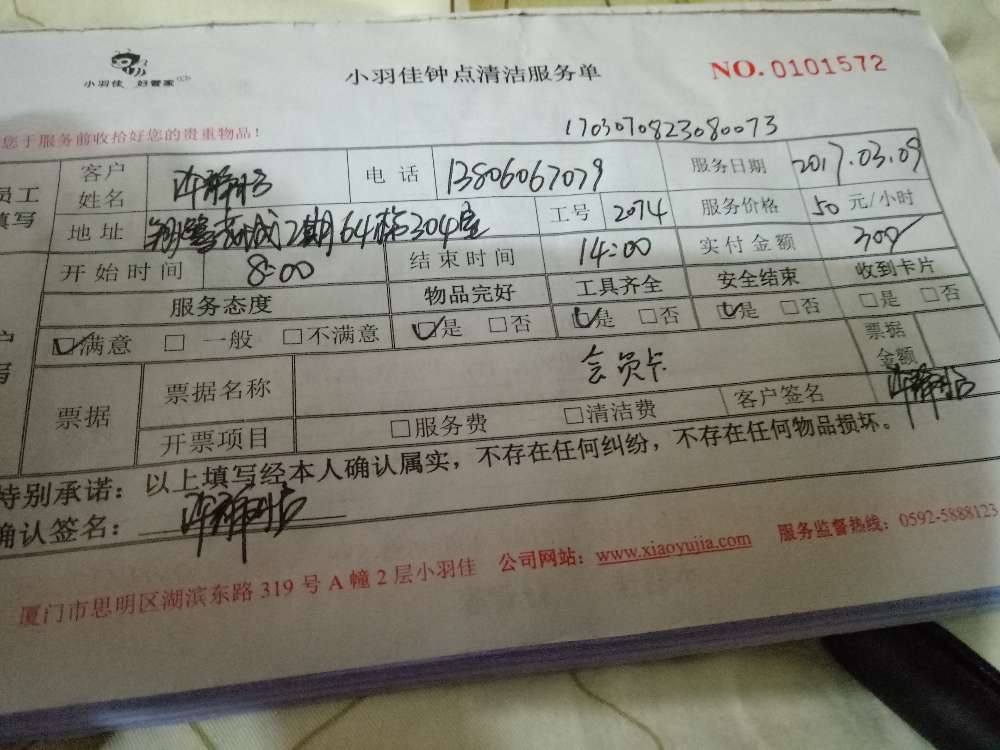 小羽佳 好管家
小羽佳钟点清洁服务单
NO.0101572
您于服务前收拾好您的贵重物品！
1703070823080073
员工
填写
客户
姓名
电话 13806067079 服务日期 2017.03.09
地址 2期64栋304室 工号 2074 服务价格 50 元/小时
开始时间 8:00 结束时间 14:00 实付金额 300
服务态度 物品完好 工具齐全 安全结束 收到卡片
☑满意 □ 一般 □不满意 ☑是 □否 ☑是 □否 ☑是 □否 □是 □否
票据 票据名称 会员卡 票据
金额
开票项目 □服务费 □清洁费 客户签名
特别承诺：以上填写经本人确认属实，不存在任何纠纷，不存在任何物品损坏。
确认签名：
厦门市思明区湖滨东路 319 号 A 幢 2 层小羽佳 公司网站：www.xiaoyujia.com 服务监督热线：0592-5888123